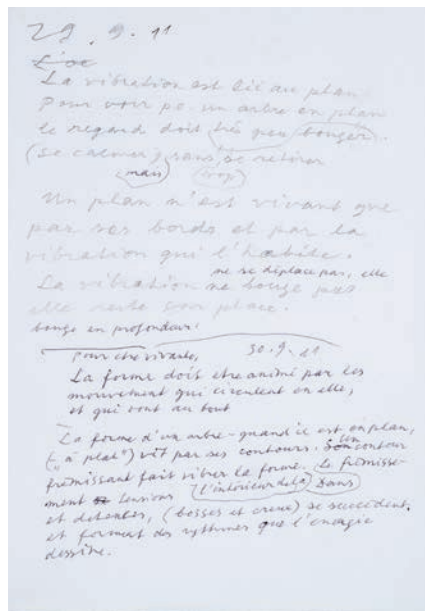 29.9.11
L'oe
La vibration est lié au plan
Pour voir p.e. un arbre en plan
le regard doit très peu bouger.
(se calmer) sans se retirer
mais trop
Un plan n'est vivant que
par ses bords et par la
vibration qui l'habite.
ne se déplace pas, elle
La vibration ne bouge pas
elle reste sur place.
bouge en profondeur.
Pour etre vivante, 30.9.11
La forme doit etre animé par les
mouvement qui circulent en elle,
et qui vont au tout
La forme d'un arbre - quand il est en plan,
("à plat") vit par ses contours. Son Un contour
frémissant fait vibrer la forme. Le frémisse-
ment tensions l'intérieur de la Dans
et detentes, (bosses et creux) se succèdent,
et forment des rythmes que l'énergie
dessine.